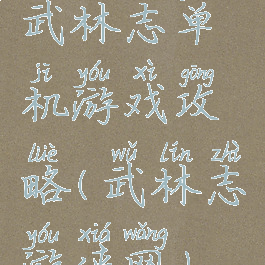 武林志单
jī yóu xì gōng
机游戏攻
lüè wǔ lín zhì
略(武林志
yóu xiá wǎng
游侠网)